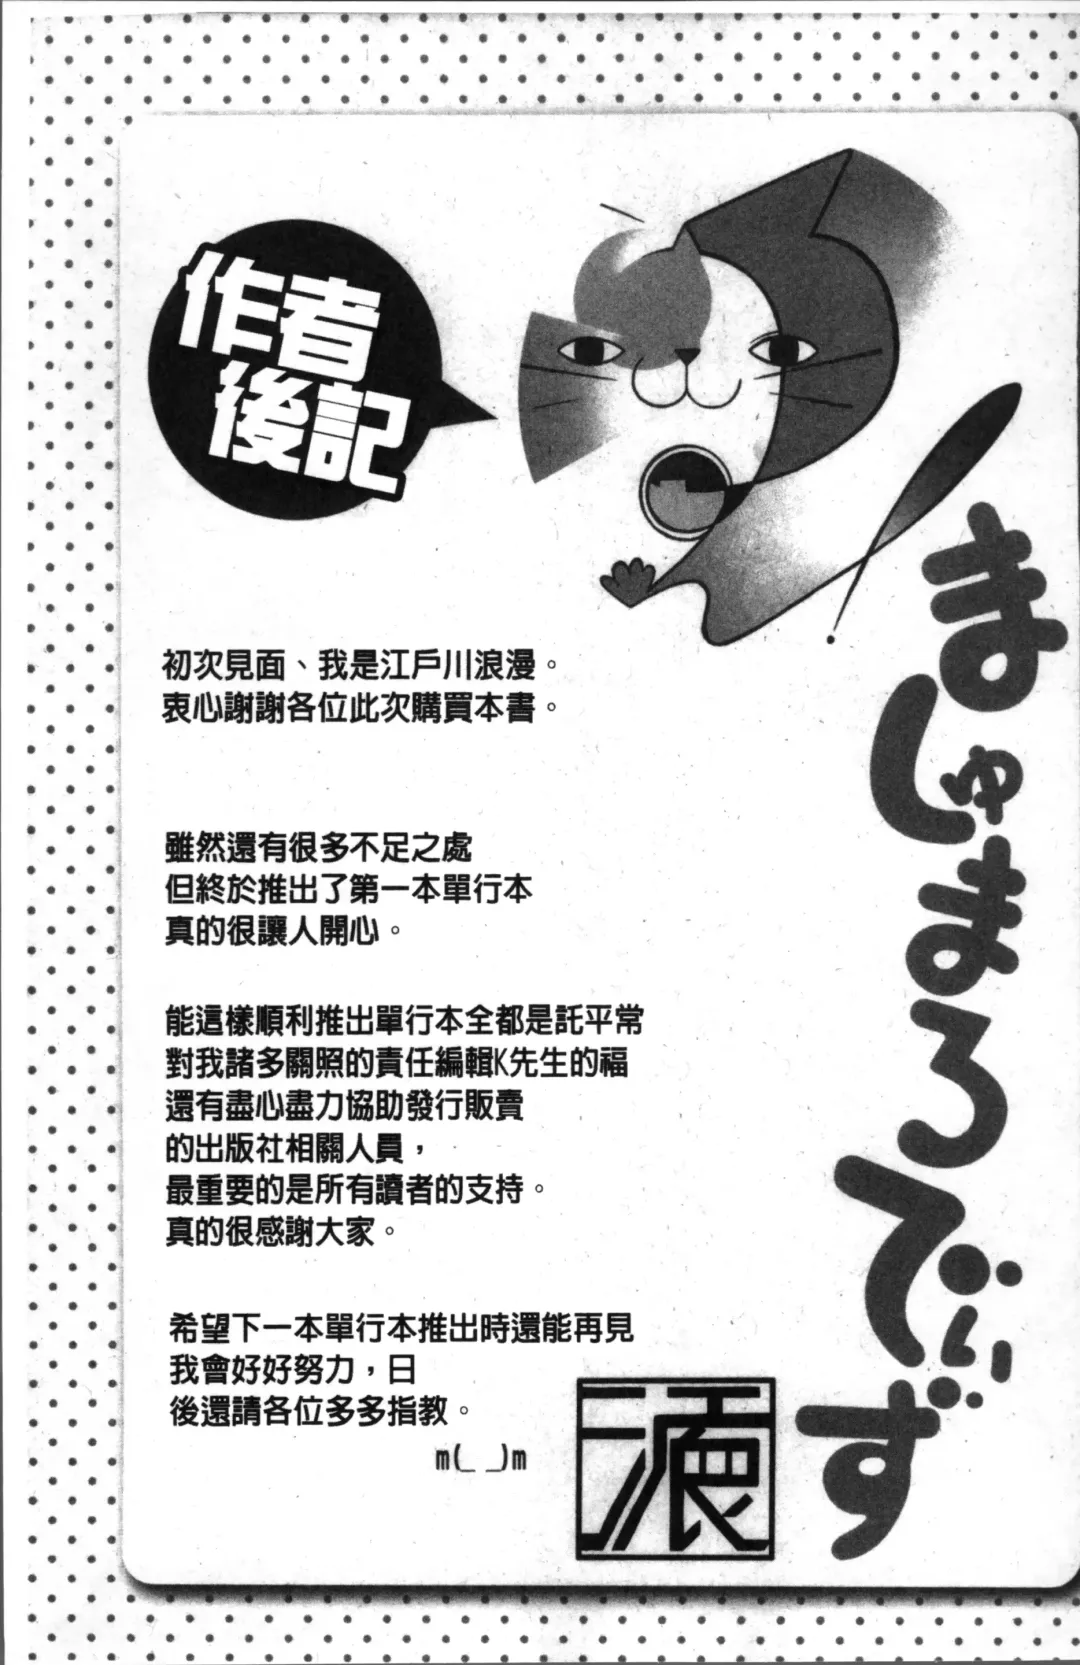 作者
後記
初次見面、我是江戶川浪漫。
衷心謝謝各位此次購買本書。
雖然還有很多不足之處
但終於推出了第一本單行本
真的很讓人開心。
能這樣順利推出單行本全都是託平常
對我諸多關照的責任編輯K先生的福
還有盡心盡力協助發行販賣
的出版社相關人員，
最重要的是所有讀者的支持。
真的很感謝大家。
希望下一本單行本推出時還能再見
我會好好努力，日
後還請各位多多指教。
m(_ _)m
ましゅまろでぃず